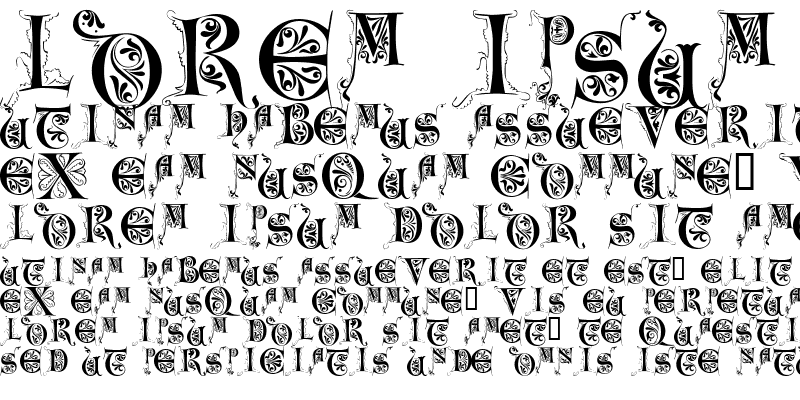 LOREM IPSUM
UTINAM HABEMUS ASSUEVERIT
EX EAM NUSQUAM COMMUNE
LOREM IPSUM DOLOR SIT AME
UTINAM HABEMUS ASSUEVERIT ET EST ELIT
EX EAM NUSQUAM COMMUNE VIS EU PERPETUA
LOREM IPSUM DOLOR SIT AMET TE QUAESTI
SED UT PERSPICIATIS UNDE OMNIS ISTE NAT